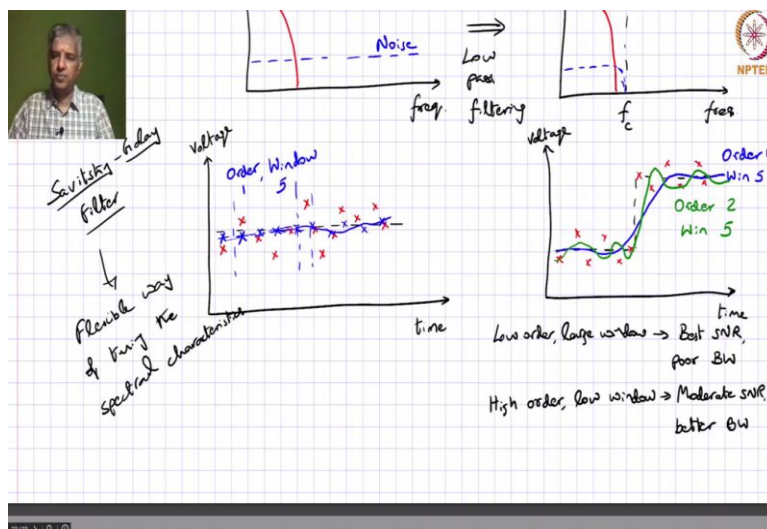 Noise
freq.
Low
pass
filtering
fc
freq
NPTEL
Savitsky-Golay
Filter
Flexible way
of tuning the
spectral characteristics
voltage
Order, Window
5
time
voltage
Order
Win 5
Order 2
Win 5
time
Low order, large window → Best SNR,
poor BW
High order, low window → Moderate SNR,
better BW